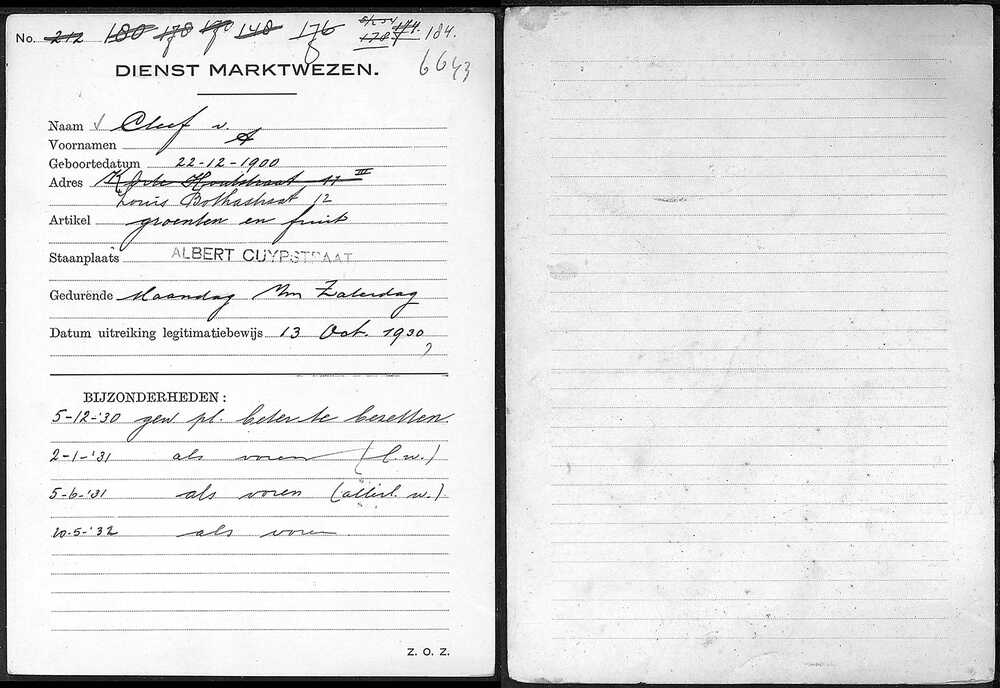 No. 212 180 178 170 148 176 178 174. 184.
DIENST MARKTWEZEN. 6643
Naam Cleef v.
Voornamen A
Geboortedatum 22-12-1900
Adres Korte Houtstraat 17 III
Louis Bothastraat 12
Artikel groenten en fruit
Staanplaats ALBERT CUYPSTRAAT
Gedurende Maandag t/m Zaterdag
Datum uitreiking legitimatiebewijs 13 Oct. 1930
BIJZONDERHEDEN:
5-12-'30 gew pl. beter te bezetten.
2-1-'31 als voren (l.w.)
5-6-'31 als voren (allerl. w.)
20-5-'32 als voren
Z. O. Z.